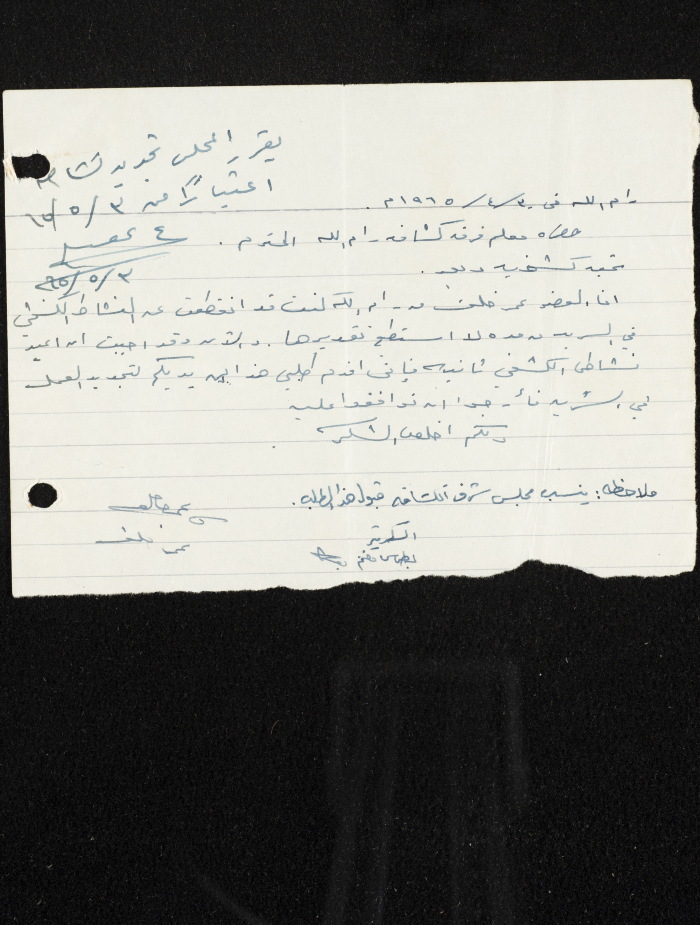 يقرر المجلس تجديد نشاطه
اعتباراً من ٣/٥/٦٥
٣/٥/٦٥
رام الله في ٣٠/٤/١٩٦٥م.
حضرة معلم فرقة كشافة رام الله المحترم.
تحية كشفية وبعد.
انا العضو عمر خلف من رام الله كنت قد انقطعت عن النشاط الكشفي
في السرية مدة لا استطيع تقديرها. والآن وقد احببت ان اعيد
نشاطي الكشفي ثانية فإني اقدم طلبي هذا بين يديكم لتجديد العمل
في السرية فأرجوا ان توافقوا عليه
ولكم اخلص الشكر.
ملاحظة: ينسب مجلس شرف الكشافة قبول هذا الطلب.
السكرتير
عمر خلف